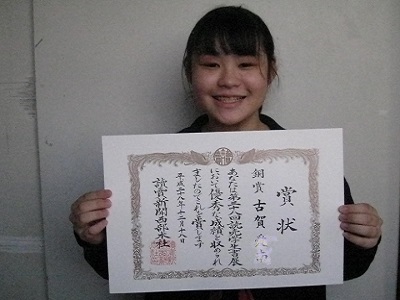 賞状
銅賞 古賀
あなたは第三十八回読売学生書展
において優秀な成績を収められ
ましたのでこれを賞します
平成二十八年十二月十八日
讀賣新聞西部本社